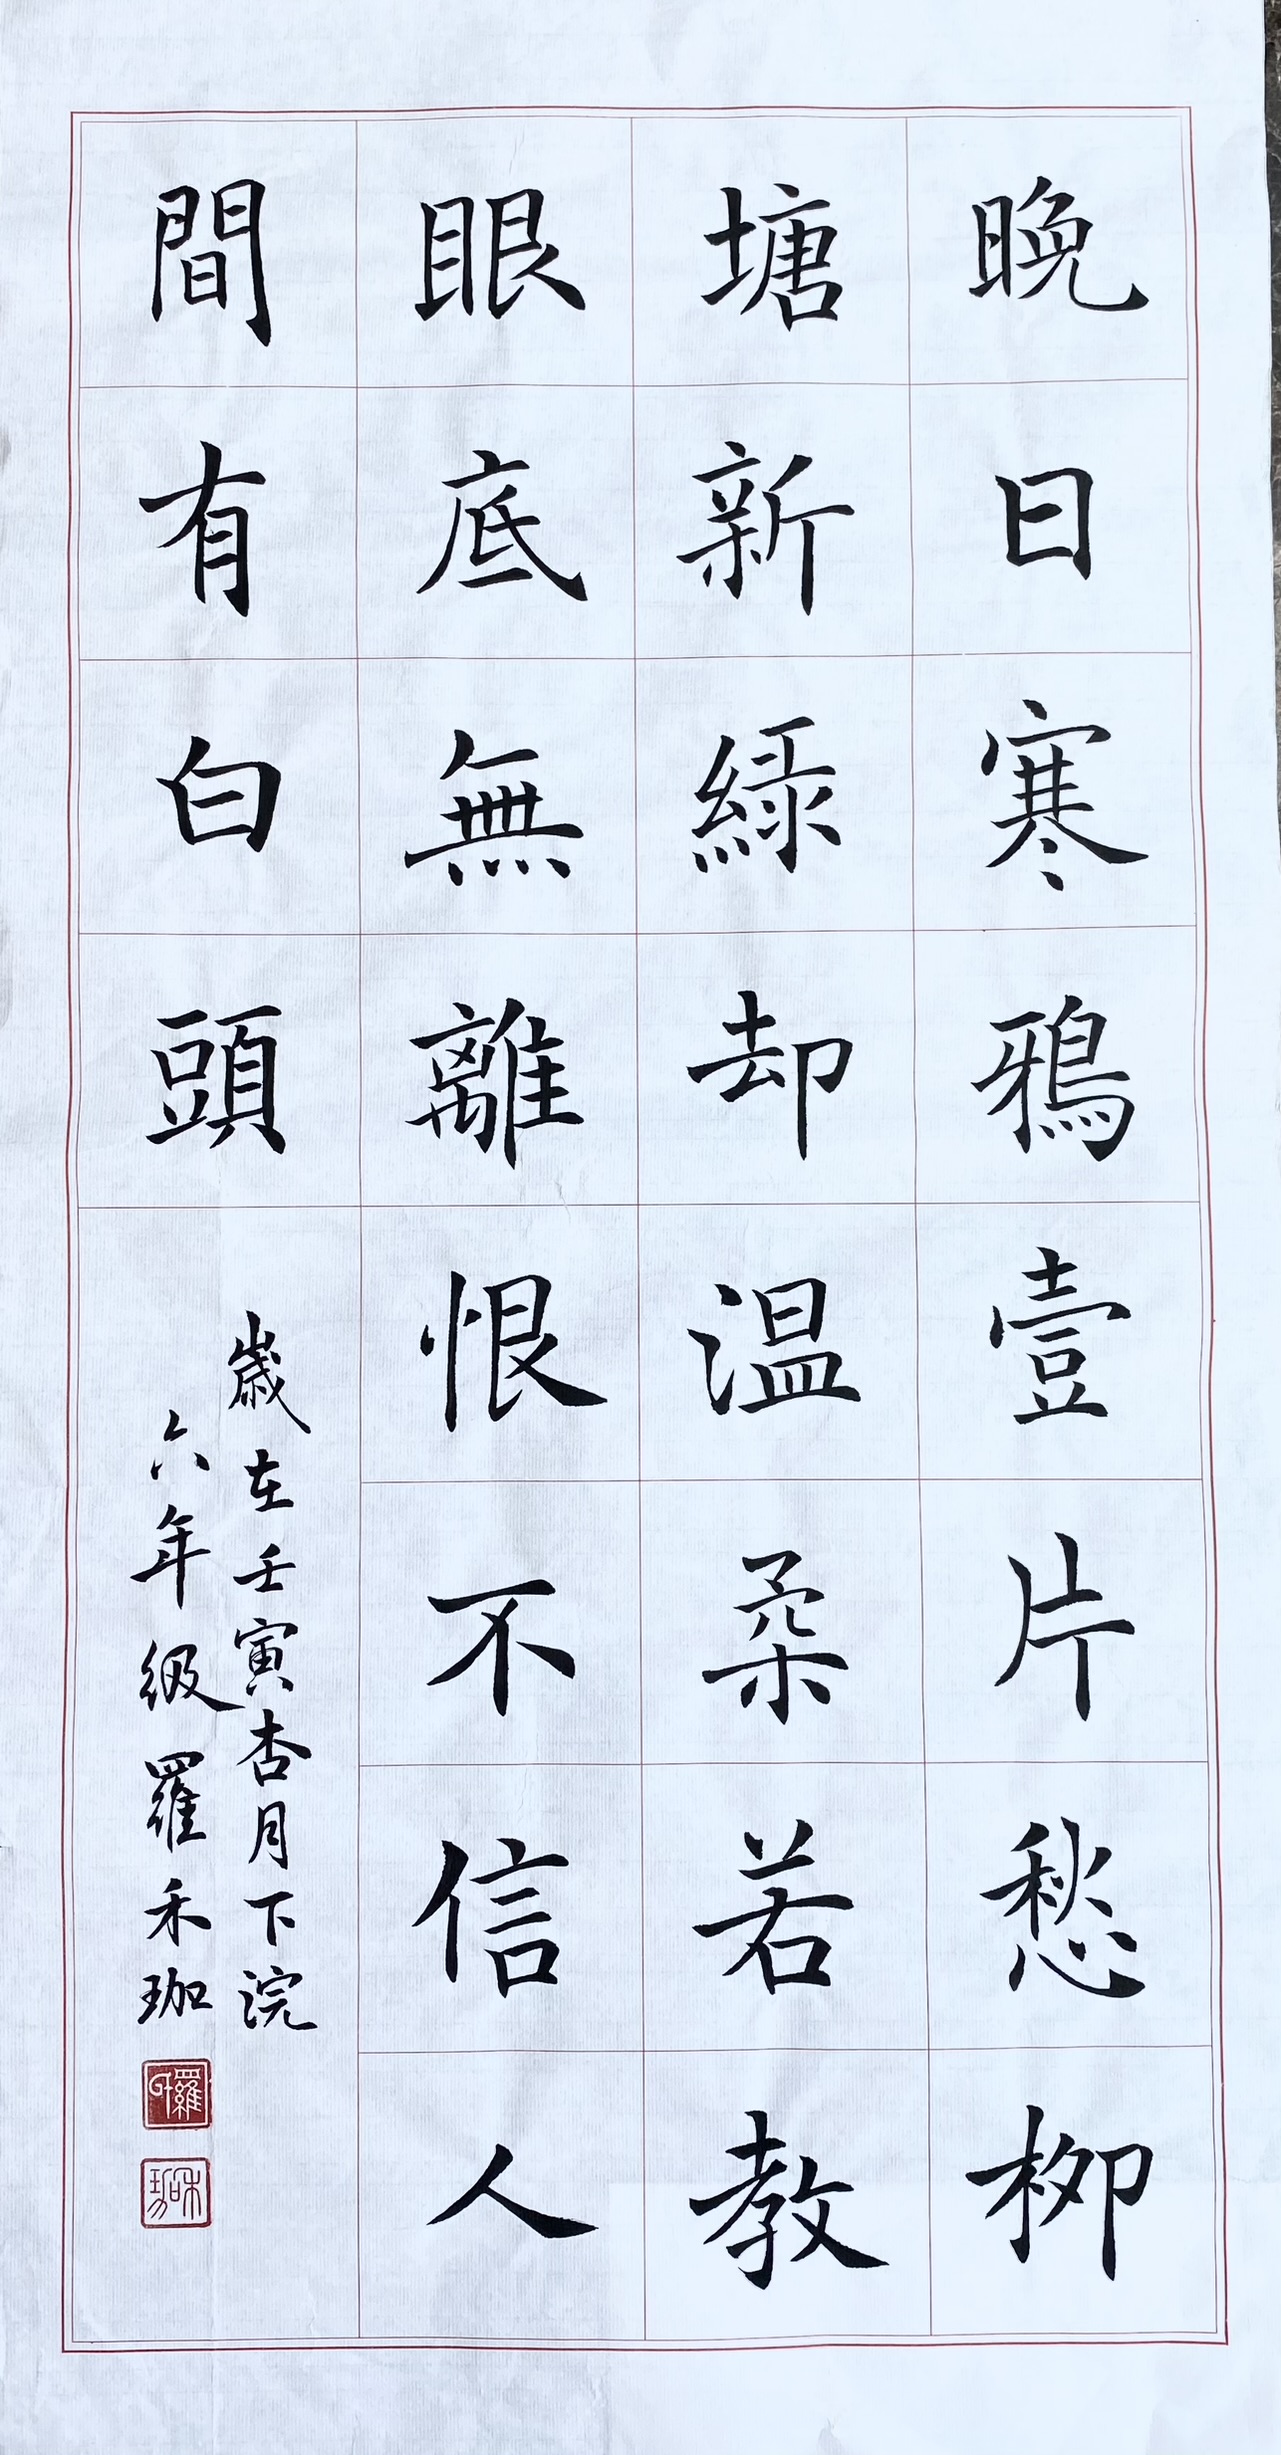 晚日寒鴉壹片愁柳
塘新綠却温柔若教
眼底無離恨不信人
間有白頭
歲在壬寅杏月下浣
六年級羅禾珈
羅
禾珈